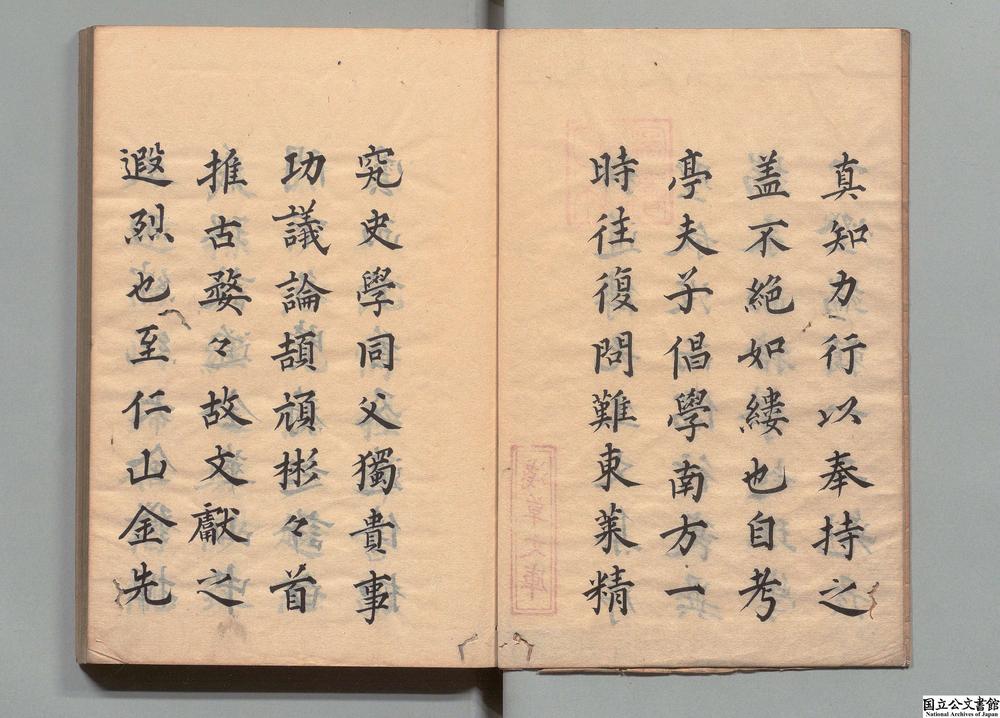 真知力行以奉持之
盖不絕如縷也自考
亭夫子倡學南方一
時往復問難東萊精
究史學同父獨貴事
功議論頡頏彬々首
推古婺々故文獻之
遐烈也至仁山金先
淺草文庫
国立公文書館
National Archives of Japan